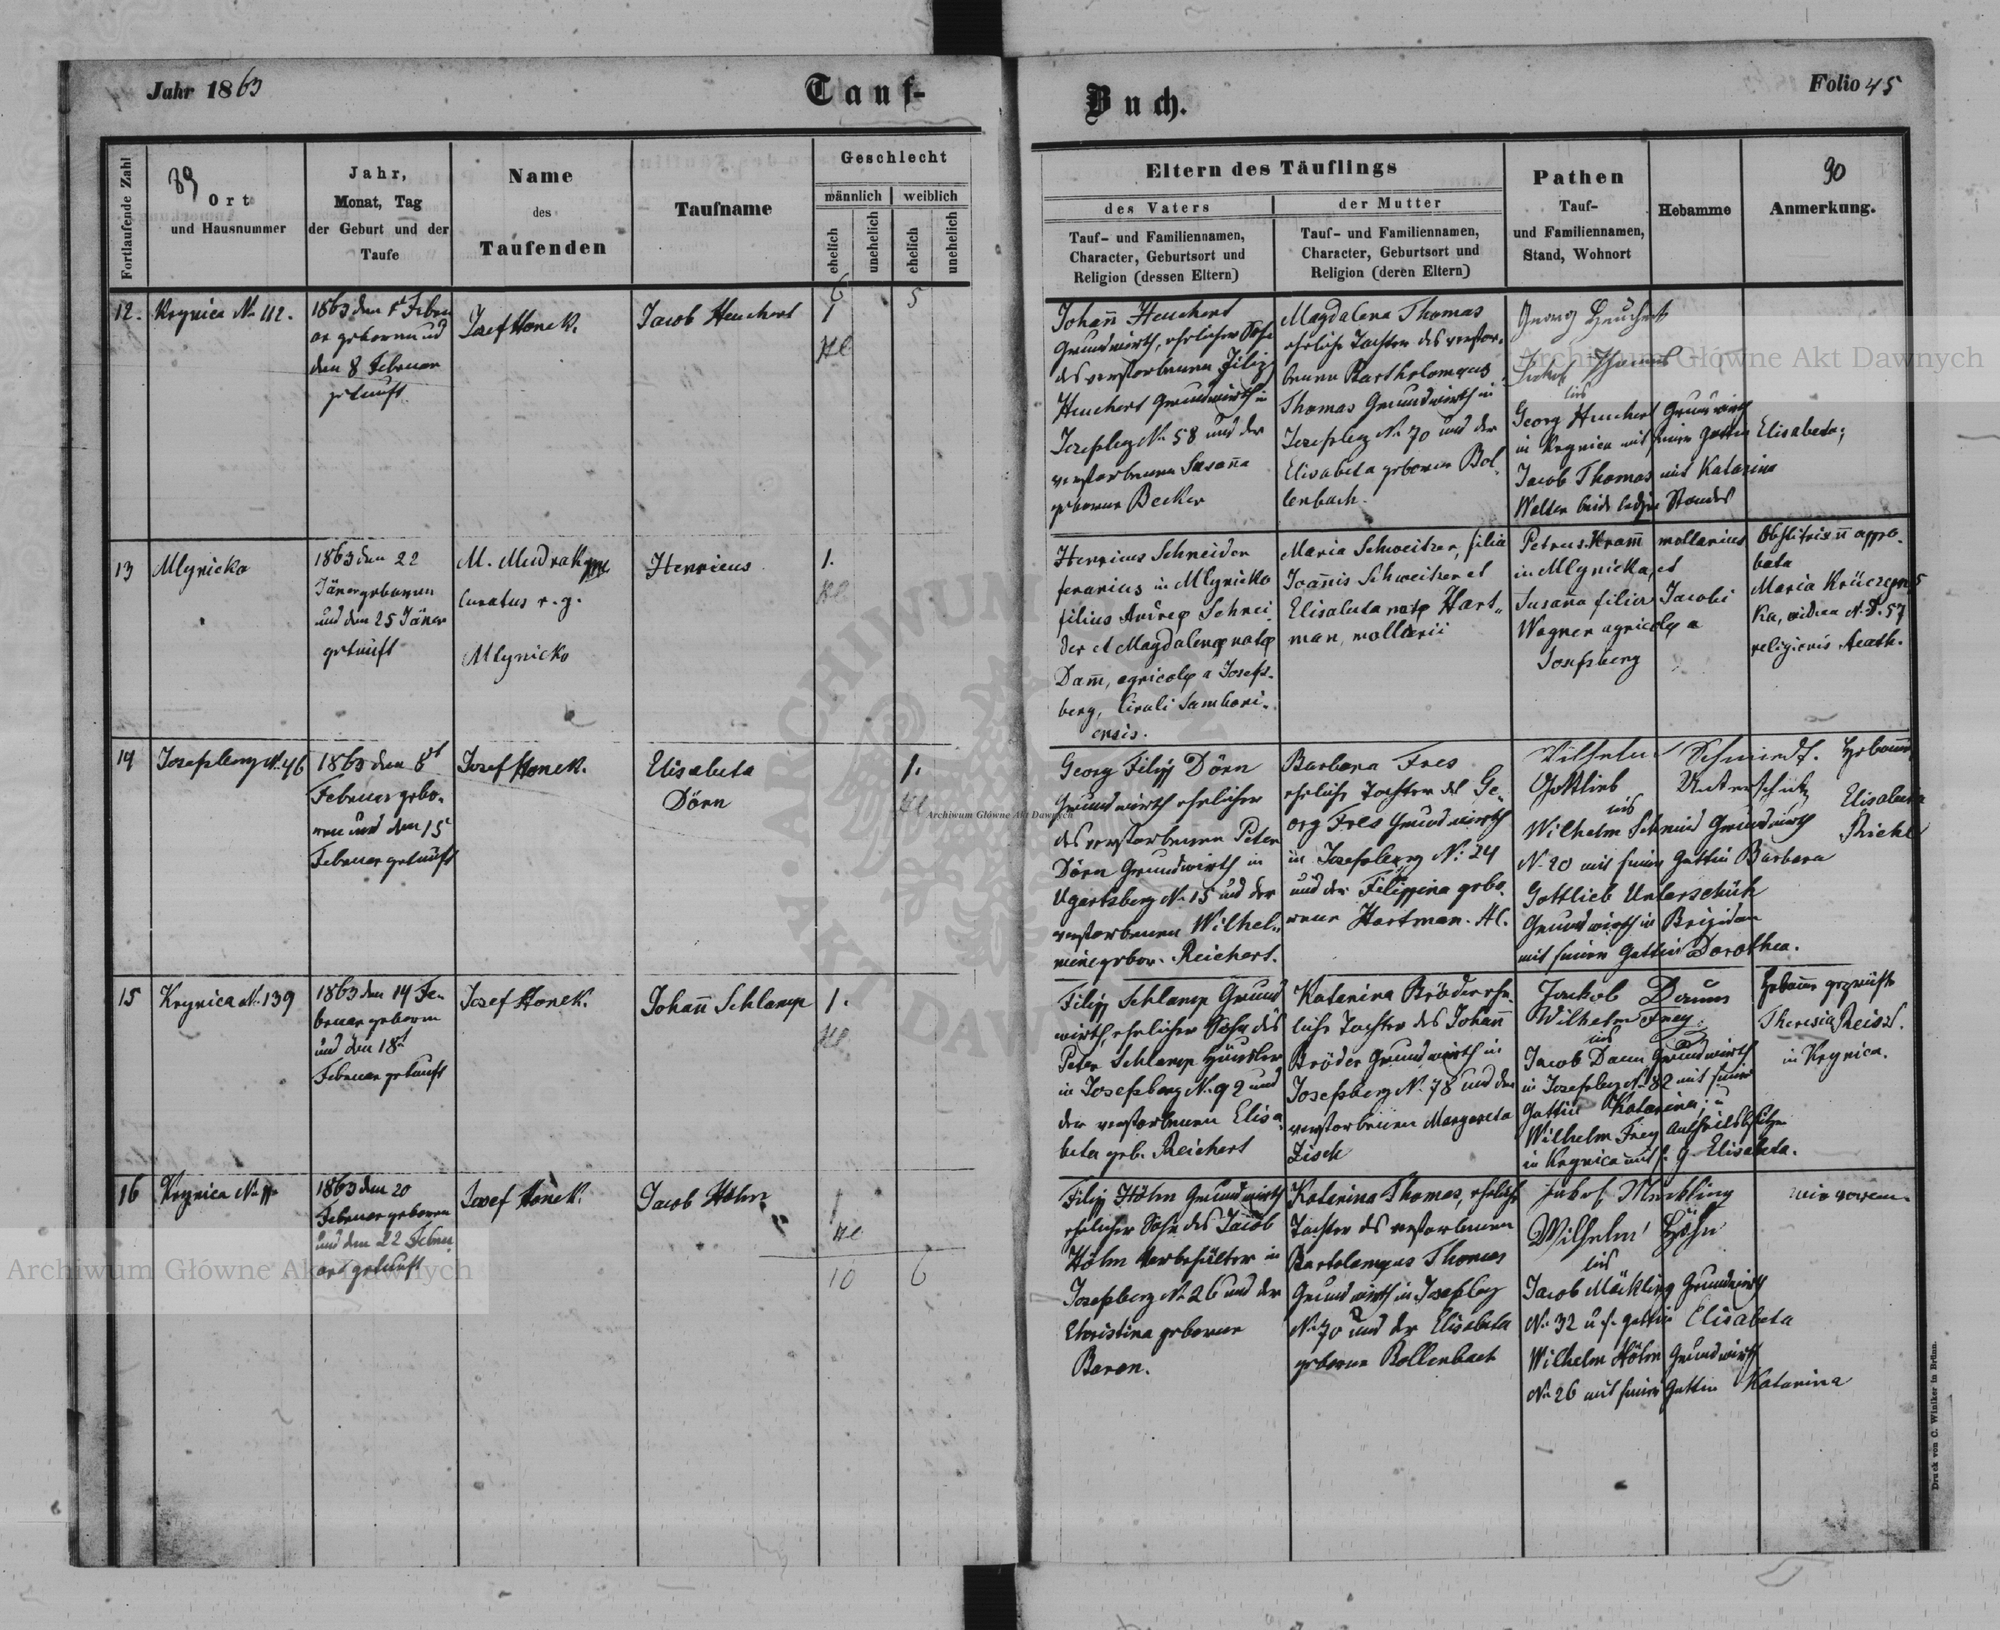 Jahr 1863
Tauf-
Buch.
Folio 45
Fortlaufende Zahl
39
Ort
und Hausnummer
Jahr,
Monat, Tag
der Geburt und der
Taufe
Name
des
Taufenden
Taufname
Geschlecht
männlich
weiblich
ehelich
unehelich
ehelich
unehelich
Eltern des Täuflings
des Vaters
der Mutter
Tauf- und Familiennamen,
Character, Geburtsort und
Religion (dessen Eltern)
Tauf- und Familiennamen,
Character, Geburtsort und
Religion (deren Eltern)
Pathen
Tauf-
und Familiennamen,
Stand, Wohnort
Hebamme
90
Anmerkung.
6
5
12.
Krynica No 112.
1863 den
geboren und
den 8 Februar
getauft
Josef Honek.
Jacob Heuchert
1
Johann Heuchert
Grundwirth, ehelicher Sohn
des verstorbenen Filip
Heuchert Grundwirth in
Josefsberg No 58 und der
verstorbenen Susanna
geborene Becker
Magdalena Thomas
eheliche Tochter des verstor-
benen Bartholomeus
Thomas Grundwirth in
Josefsberg No 70 und der
Elisabeta geborene Bol-
lenbach.
Georg Heuchert
Jakob Thomas
bis
Georg Heuchert Grundwirth
in Krynica mit seiner Gattin Elisabeta;
Jacob Thomas mit Katarina
Walter beide ledigen Standes
13
Mlynicko
1863 den 22
Jäner geboren
und den 25 Jäner
getauft
M. Mudrak
Curatus r. g.
Mlynicko
Henricus
1.
Henricus Schneider
in Mlynicko
filius Andreæ Schnei-
der et Magdalenæ natæ
Damm, agricolæ a Josefs-
berg, Circuli Sambori-
ensis.
Maria Schweitzer, filia
Joannis Schweitzer et
Elisabeta natæ Hart-
man, mollarii
Petrus Kramm mollarius
in Mlynicka, et
Susanna filia Jacobi
Wagner agricolæ a
Josefsberg
Obstitrix non appro-
bata
Maria
ka, vidua No D. 57
religionis
14
Josefsberg No. 46
1863 den 8t
Februar gebo-
ren und den 15t
Februar getauft
Josef Honek.
Elisabeta
Dörn
1.
Georg Filip Dörn
Grundwirth ehelicher
des verstorbenen Peter
Dörn Grundwirth in
Ugartsberg No 15 und der
verstorbenen Wilhel-
mine gebor. Reichert.
Barbara Fres
eheliche Tochter des Ge-
org Fres Grundwirth
in Josefsberg No: 24
und der Filippina gebo-
rene Hartman. HC.
Wilhelm Schmidt.
Gottlieb Unterschütz
bis
Wilhelm Schmid Grundwirth
No 20 mit seiner Gattin Barbara
Gottlieb Unterschütz
Grundwirth in Brigidau
mit seiner Gattin Dorothea.
Hebamme
Elisabeta
15
Krynica No. 139
1863 den 14 Fe-
bruar geboren
und den 18t
Februar getauft
Josef Honek.
Johann Schlamp
1.
Filip Schlamp Grund
wirth, ehelicher Sohn des
Peter Schlamp Häusler
in Josefsberg No. 92 und
der verstorbenen Elisa-
beta geb. Reichert
Katarina Bröder ehe-
liche Tochter des Johann
Bröder Grundwirth in
Josefsberg No. 78 und der
verstorbenen Margareta
Zisch
Jackob Daum
Wilhelm Frey
bis
Jacob Daum Grundwirth
in Josefsberg No 82 mit seiner
Gattin Katarina; u
Wilhelm Frey Antheilsbesitzer
in Krynica mit s. g. Elisabeta.
Hebamme geprüfte
Theresia Reiss.
in Krynica.
16
Krynica No
1863 den 20
Februar geboren
und den 22 Febru
ar getauft
Josef Honek.
Jacob Höhn
1
10
6
Filip Höhn Grundwirth
ehelicher Sohn des Jacob
Höhn Vorbehälter in
Josefsberg No 26 und der
Christina geborene
Baron.
Katarina Thomas, eheliche
Tochter des verstorbenen
Bartolomeus Thomas
Grundwirth in Josefsberg
No 70 und der Elisabeta
geborene Bollenbach
Jakob Meckling
Wilhelm Höhn
bis
Jacob Mäkling Grundwirth
No 32 u. s. gattin Elisabeta
Wilhelm Höhn Grundwirth
No 26 mit seiner Gattin Katarina
wie voren.
Archiwum Główne Akt Dawnych
Archiwum Główne Akt Dawnych
Archiwum Główne Akt Dawnych
Druck von C. Winiker in Brünn.